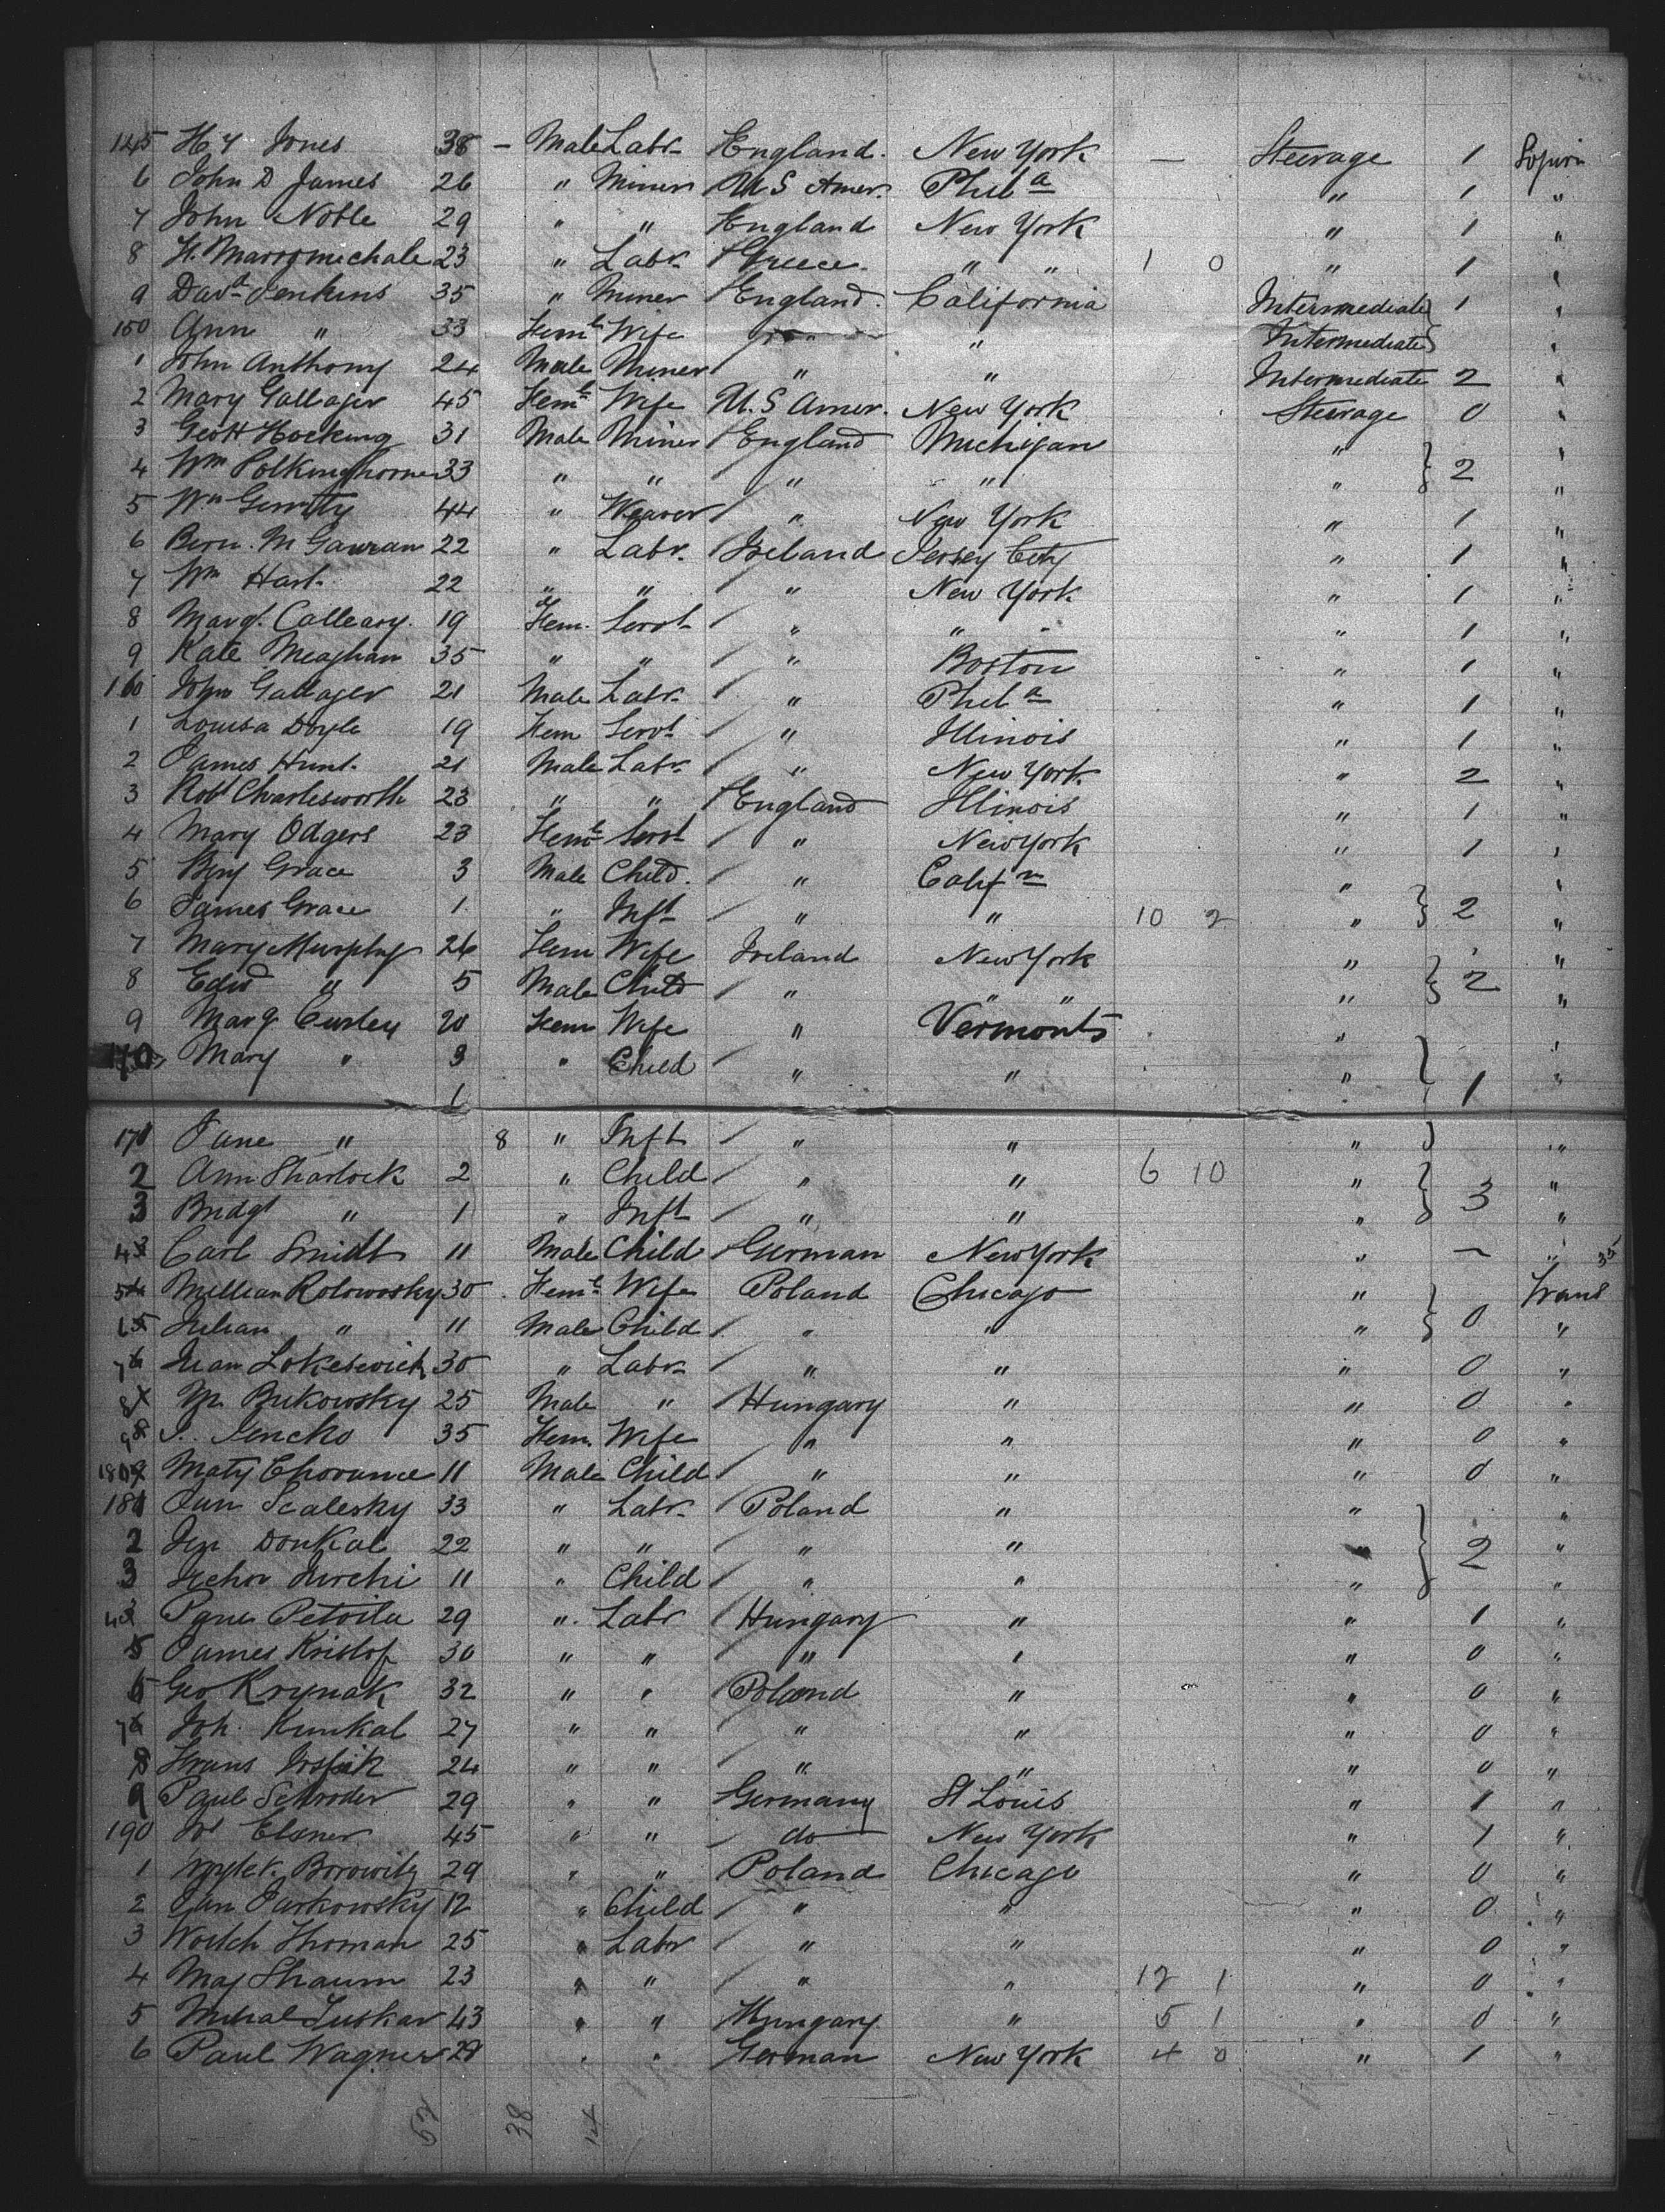 145 Hy Jones 38 — Male Labr England. New York — Steerage 1
6 John D James 26 " Miner U S Amer. Phila " 1 "
7 John Noble 29 " " England New York " 1 "
8 H. 23 " Labr Greece. " " 1 0 " 1 "
9 Davd Jenkins 35 " Miner England. California Intermediate } 1 "
150 Ann " 33 Feme Wife " " Intermediate "
1 John Anthony 24 Male Miner " " Intermediate 2 "
2 Mary Gallager 45 Feme Wife U.S Amer. New York Steerage 0 "
3 Geo H Hocking 31 Male Miner England Michigan " "
4 Wm Polkinghorne 33 " " " " " } 2 "
5 Wm Gerrity 44 " Weaver " New York " 1 "
6 Bern. McGauran 22 " Labr. Ireland Jersey City " 1 "
7 Wm Hart. 22 " " " New York " 1 "
8 Margt. Calleary. 19 Fem. Servt " " " 1 "
9 Kate Meaghan 35 " " " Boston " 1 "
160 John Gallager 21 Male Labr " Phila " 1 "
1 Louisa Doyle 19 Fem Servt " Illinois " 1 "
2 James Hunt. 21 Male Labr " New York " 2 "
3 Robt Charlesworth 23 " " England Illinois " 1 "
4 Mary Odgers 23 Feme Servt " New York " 1 "
5 Benj Grace 3 Male Child. " Califn " "
6 James Grace 1 " Inft " " 10 2 " } 2 "
7 Mary Murphy 26 Fem Wife Ireland New York " "
8 Edwd " 5 Male Child " " " " } 2 "
9 Margt Curley 20 Fem Wife " Vermont " "
170 Mary " 3 " Child " " " } 1 "
171 Jane " 8 " Inft " " " "
2 Ann Sharlock 2 " Child " " 6 10 " "
3 Bridgt " 1 " Inft " " " } 3 "
4 Carl Smidt 11 Male Child German New York " — " 35
5 Millian Rolowosky 30 Feme Wife Poland Chicago " Trans
6 Julian " 11 Male Child " " " } 0 "
7 Lokesewich 30 " Labr " " " 0 "
8 M. Bukowsky 25 Male " Hungary " " 0 "
9 J. Jencko 35 Fem. Wife " " " 0 "
180 Maty Chovance 11 Male Child " " " 0 "
181 Jan Scalesky 33 " Labr Poland " " "
2 Jen Donkal 22 " " " " " } 2 "
3 11 " Child " " " "
4 Petvila 29 " Labr Hungary " " 1 "
5 James Kristof 30 " " " " " 0 "
6 Geo Krynak 32 " " Poland " " 0 "
7 Joh. Kunkal 27 " " " " " 0 "
8 Frans 24 " " " " " 0 "
9 Paul Schroder 29 " " Germany St Louis " 1 "
190 Jos Elsner 45 " " do New York " 1 "
1 Borowitz 29 " " Poland Chicago " 0 "
2 Jan Jarkowsky 12 " Child " " " 0 "
3 Woitch Thoman 25 " Labr " " " 0 "
4 Maj Shaum 23 " " " " 12 1 " 0 "
5 Mihal Luskar 43 " " Hungary " 5 1 " 0 "
6 Paul Wagner 28 " " German New York 4 0 " 1 "
52 38 14